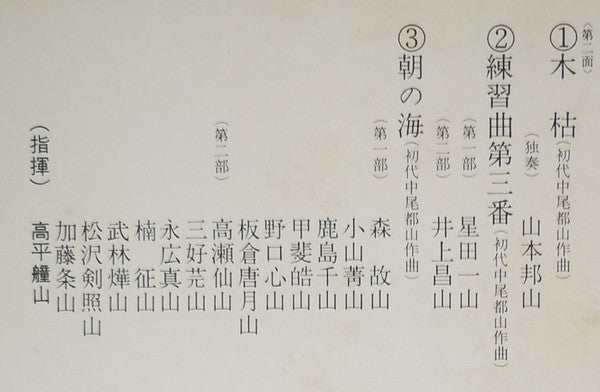 〈第二面〉
①木枯(初代中尾都山作曲)
(独奏) 山本邦山
②練習曲第三番(初代中尾都山作曲)
(第一部) 星田一山
(第二部) 井上昌山
③朝の海(初代中尾都山作曲)
(第一部) 森故山
小山菁山
鹿島千山
甲斐皓山
野口心山
板倉唐月山
(第二部) 高瀬仙山
三好芫山
永広真山
楠征山
武林燁山
松沢剣照山
加藤条山
(指揮) 高平艟山